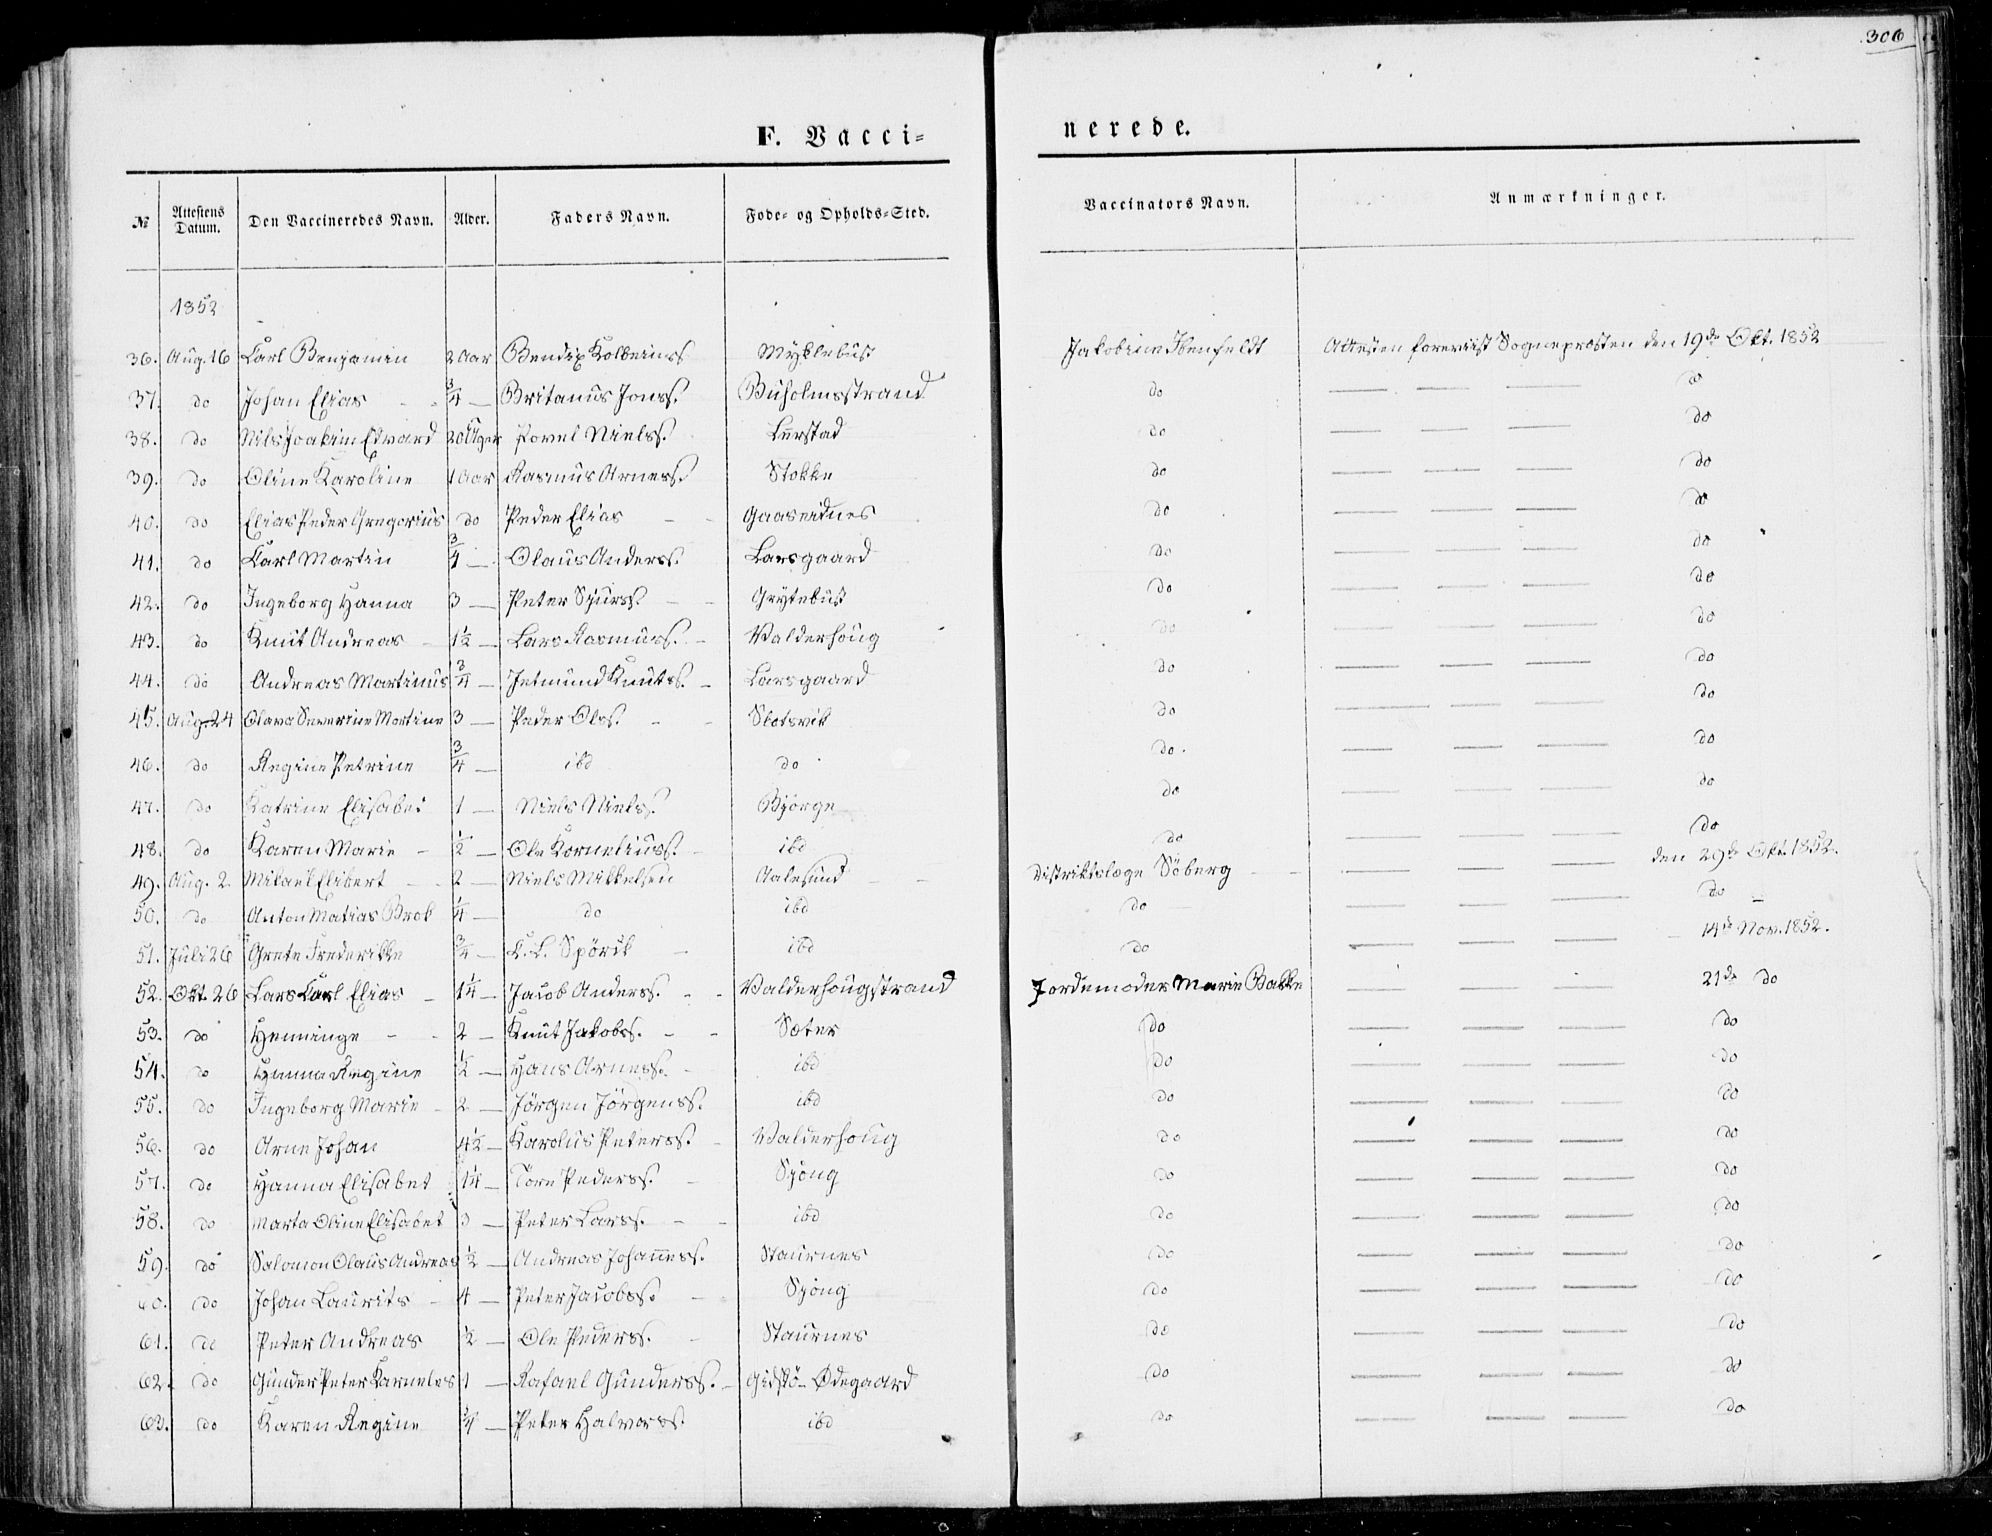 306
F. Vacci-
nerede.
№ Attestens Datum. Den Vaccineredes Navn. Alder. Faders Navn. Føde- og Opholds-Sted. Vaccinators Navn. Anmærkninger.
1852
36. Aug. 16 Carl Benjamin 2 Aar Bendix Kolbeinss Myklebust Jakobine Ibenfeldt Attesten foreviist Sogneprosten den 19de Okt. 1852
37. do Johan Elias - - 3/4 — Britanus Jonss. Buholmsstrand do — — — do
38. do Nils Joakim Edvard 20 Uger Povel Nielss. Lerstad do — — — do
39. do Oline Karoline 1 Aar Rasmus Arness. Stokke do — — — do
40. do Elias Peder Gregorius do Peder Elias - - Gaaseidnes do — — — do
41. do Carl Martin 3/4 — Olaus Anderss. Larsgaard do — — — do
42. do Ingeborg Hanna 3 — Peter Sjurss. - - Grytebust do — — — do
43. do Knut Andreas - 1½ — Lars Rasmuss. - Valderhoug do — — — do
44. do Andreas Martinus 3/4 — Jetmund Knutss. - Larsgaard do — — — do
45. Aug. 24 Olava Severine Martine 3 — Peder Olss. - - Slotsvik do — — — do
46. do Regine Petrine 3/4 — ibd do do. — — — do
47. do Katrine Elisabet 1 — Niels Nielss. Bjørge do — — — do
48. do Karen Marie - ½ — Ole Korneliuss. - ibd do — — — do
49. Aug. 2. Mikael Elibert - - 2 — Niels Mikkelsen Aalesund - - Distriktslæge Søberg - - — — — den 29de Okt. 1852.
50. do Anton Matias Brok ¼ — do ibd do — — — do
51. Juli 26 Grete Frederikke 3/4 — C. L. Spörck - ibd do — — — 14de Nov. 1852.
52. Okt. 26 Lars Carl Elias - 1¼ — Jacob Anderss. - - Valderhougstrand Jordemoder Marie Bakke — — — 21de do
53. do Heminge - - 2 — Knut Jakobs. - - Sæter do — — — do
54. do Hanna Regine ½ — Hans Arness. - ibd do — — — do
55. do Ingeborg Marie - 2 — Jörgen Jörgenss. ibd do — — — do
56. do Arne Johan 4½ — Karolus Peterss. - Valderhoug do — — — do
57. do Hanna Elisabet 1¼ — Tore Pederss. - Sjong do — — — do
58. do Marta Oline Elisabet 3 — Peter Larss. - - ibd do — — — do
59. do Salomon Olaus Andreas ½ — Andreas Johaness. Staurnes do — — — do
60. do Johan Laurits - 4 — Peter Jacobss. - Sjong do — — — do
61. do Peter Andreas ½ — Ole Pederss. - Staurnes do — — — do
62. do Gunder Peter Karneles 1 — Rafael Gunderss. - Gidskö-Ødegaard do — — — do
63. do Karen Regine ¾ — Peter Halvorss. ibd do — — — do